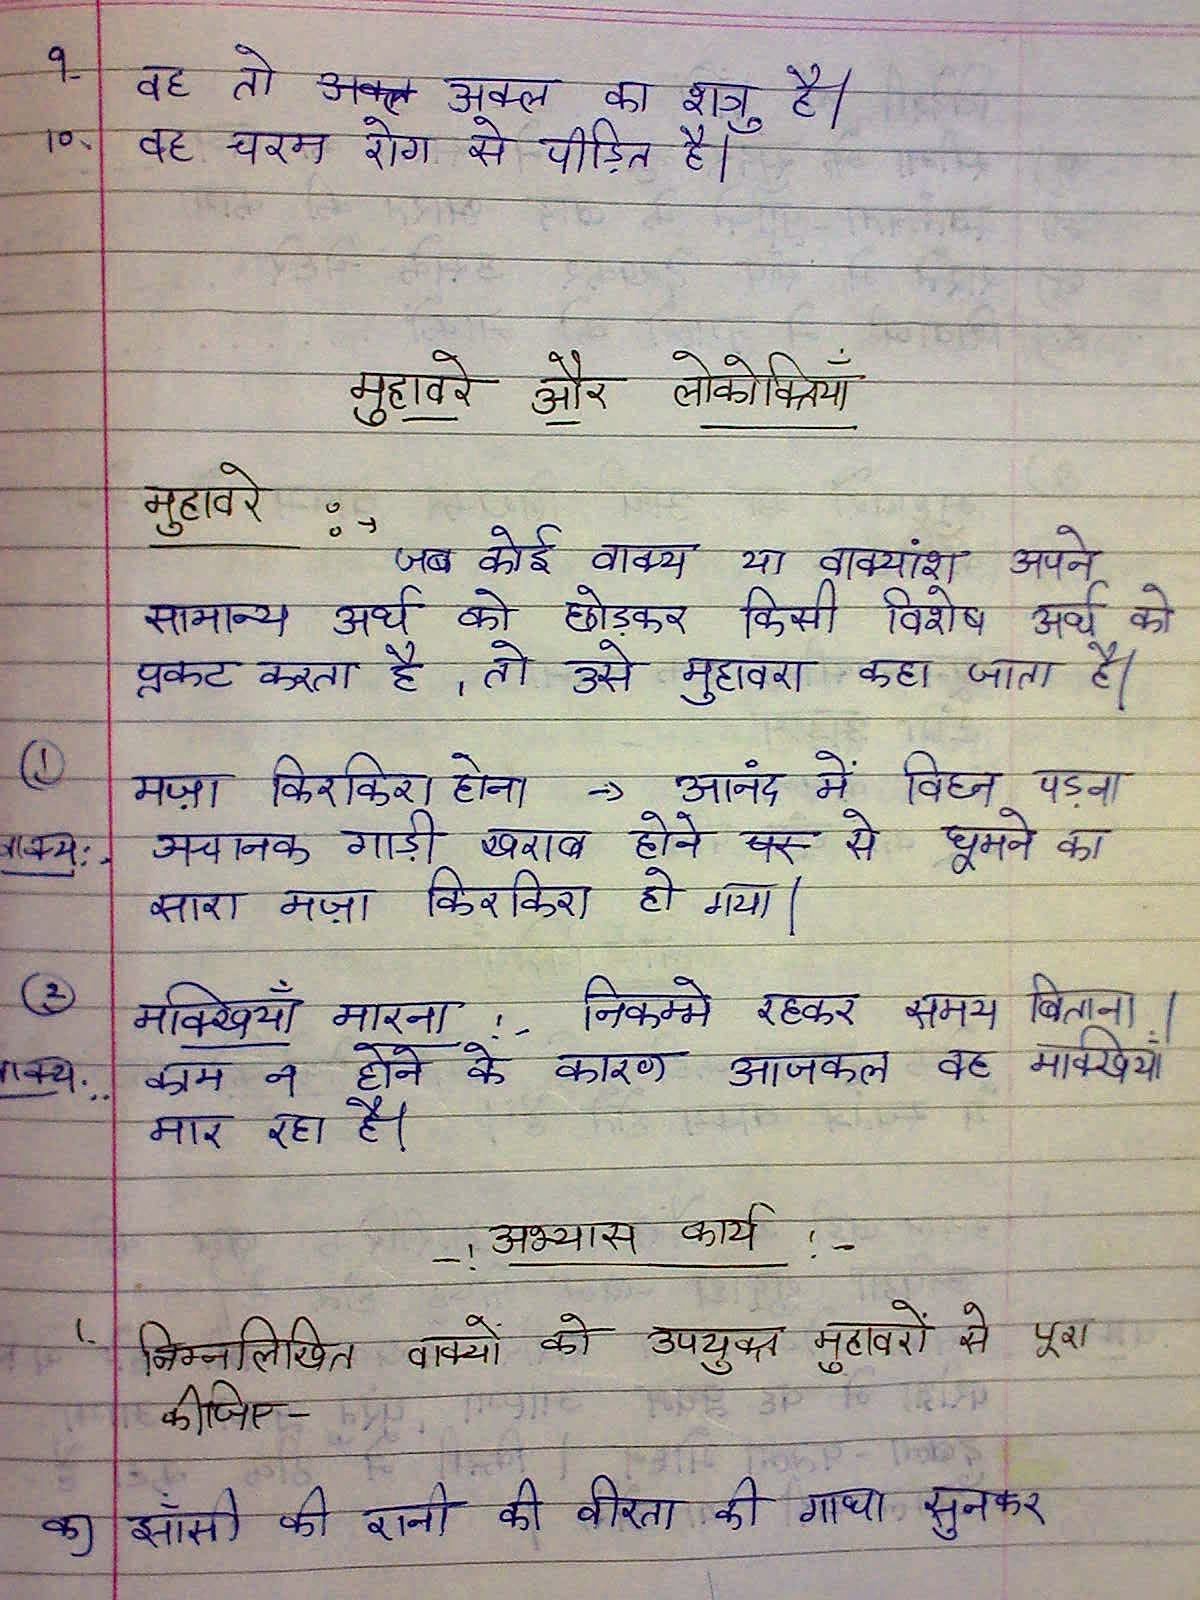 ९- वह तो अक्ल का शत्रु है।
10. वह चरम रोग से पीड़ित है।
मुहावरे और लोकोक्तियाँ
मुहावरे :→
जब कोई वाक्य या वाक्यांश अपने
सामान्य अर्थ को छोड़कर किसी विशेष अर्थ को
प्रकट करता है, तो उसे मुहावरा कहा जाता है।
(1) मज़ा किरकिरा होना → आनंद में विघ्न पड़ना
वाक्य:- अचानक गाड़ी खराब होने से घूमने का
सारा मज़ा किरकिरा हो गया।
(2) मक्खियाँ मारना :- निकम्मे रहकर समय बिताना।
वाक्य:- काम न होने के कारण आजकल वह मक्खियाँ
मार रहा है।
-: अभ्यास कार्य :-
1. निम्नलिखित वाक्यों को उपयुक्त मुहावरों से पूरा
कीजिए-
क) झाँसी की रानी की वीरता की गाथा सुनकर